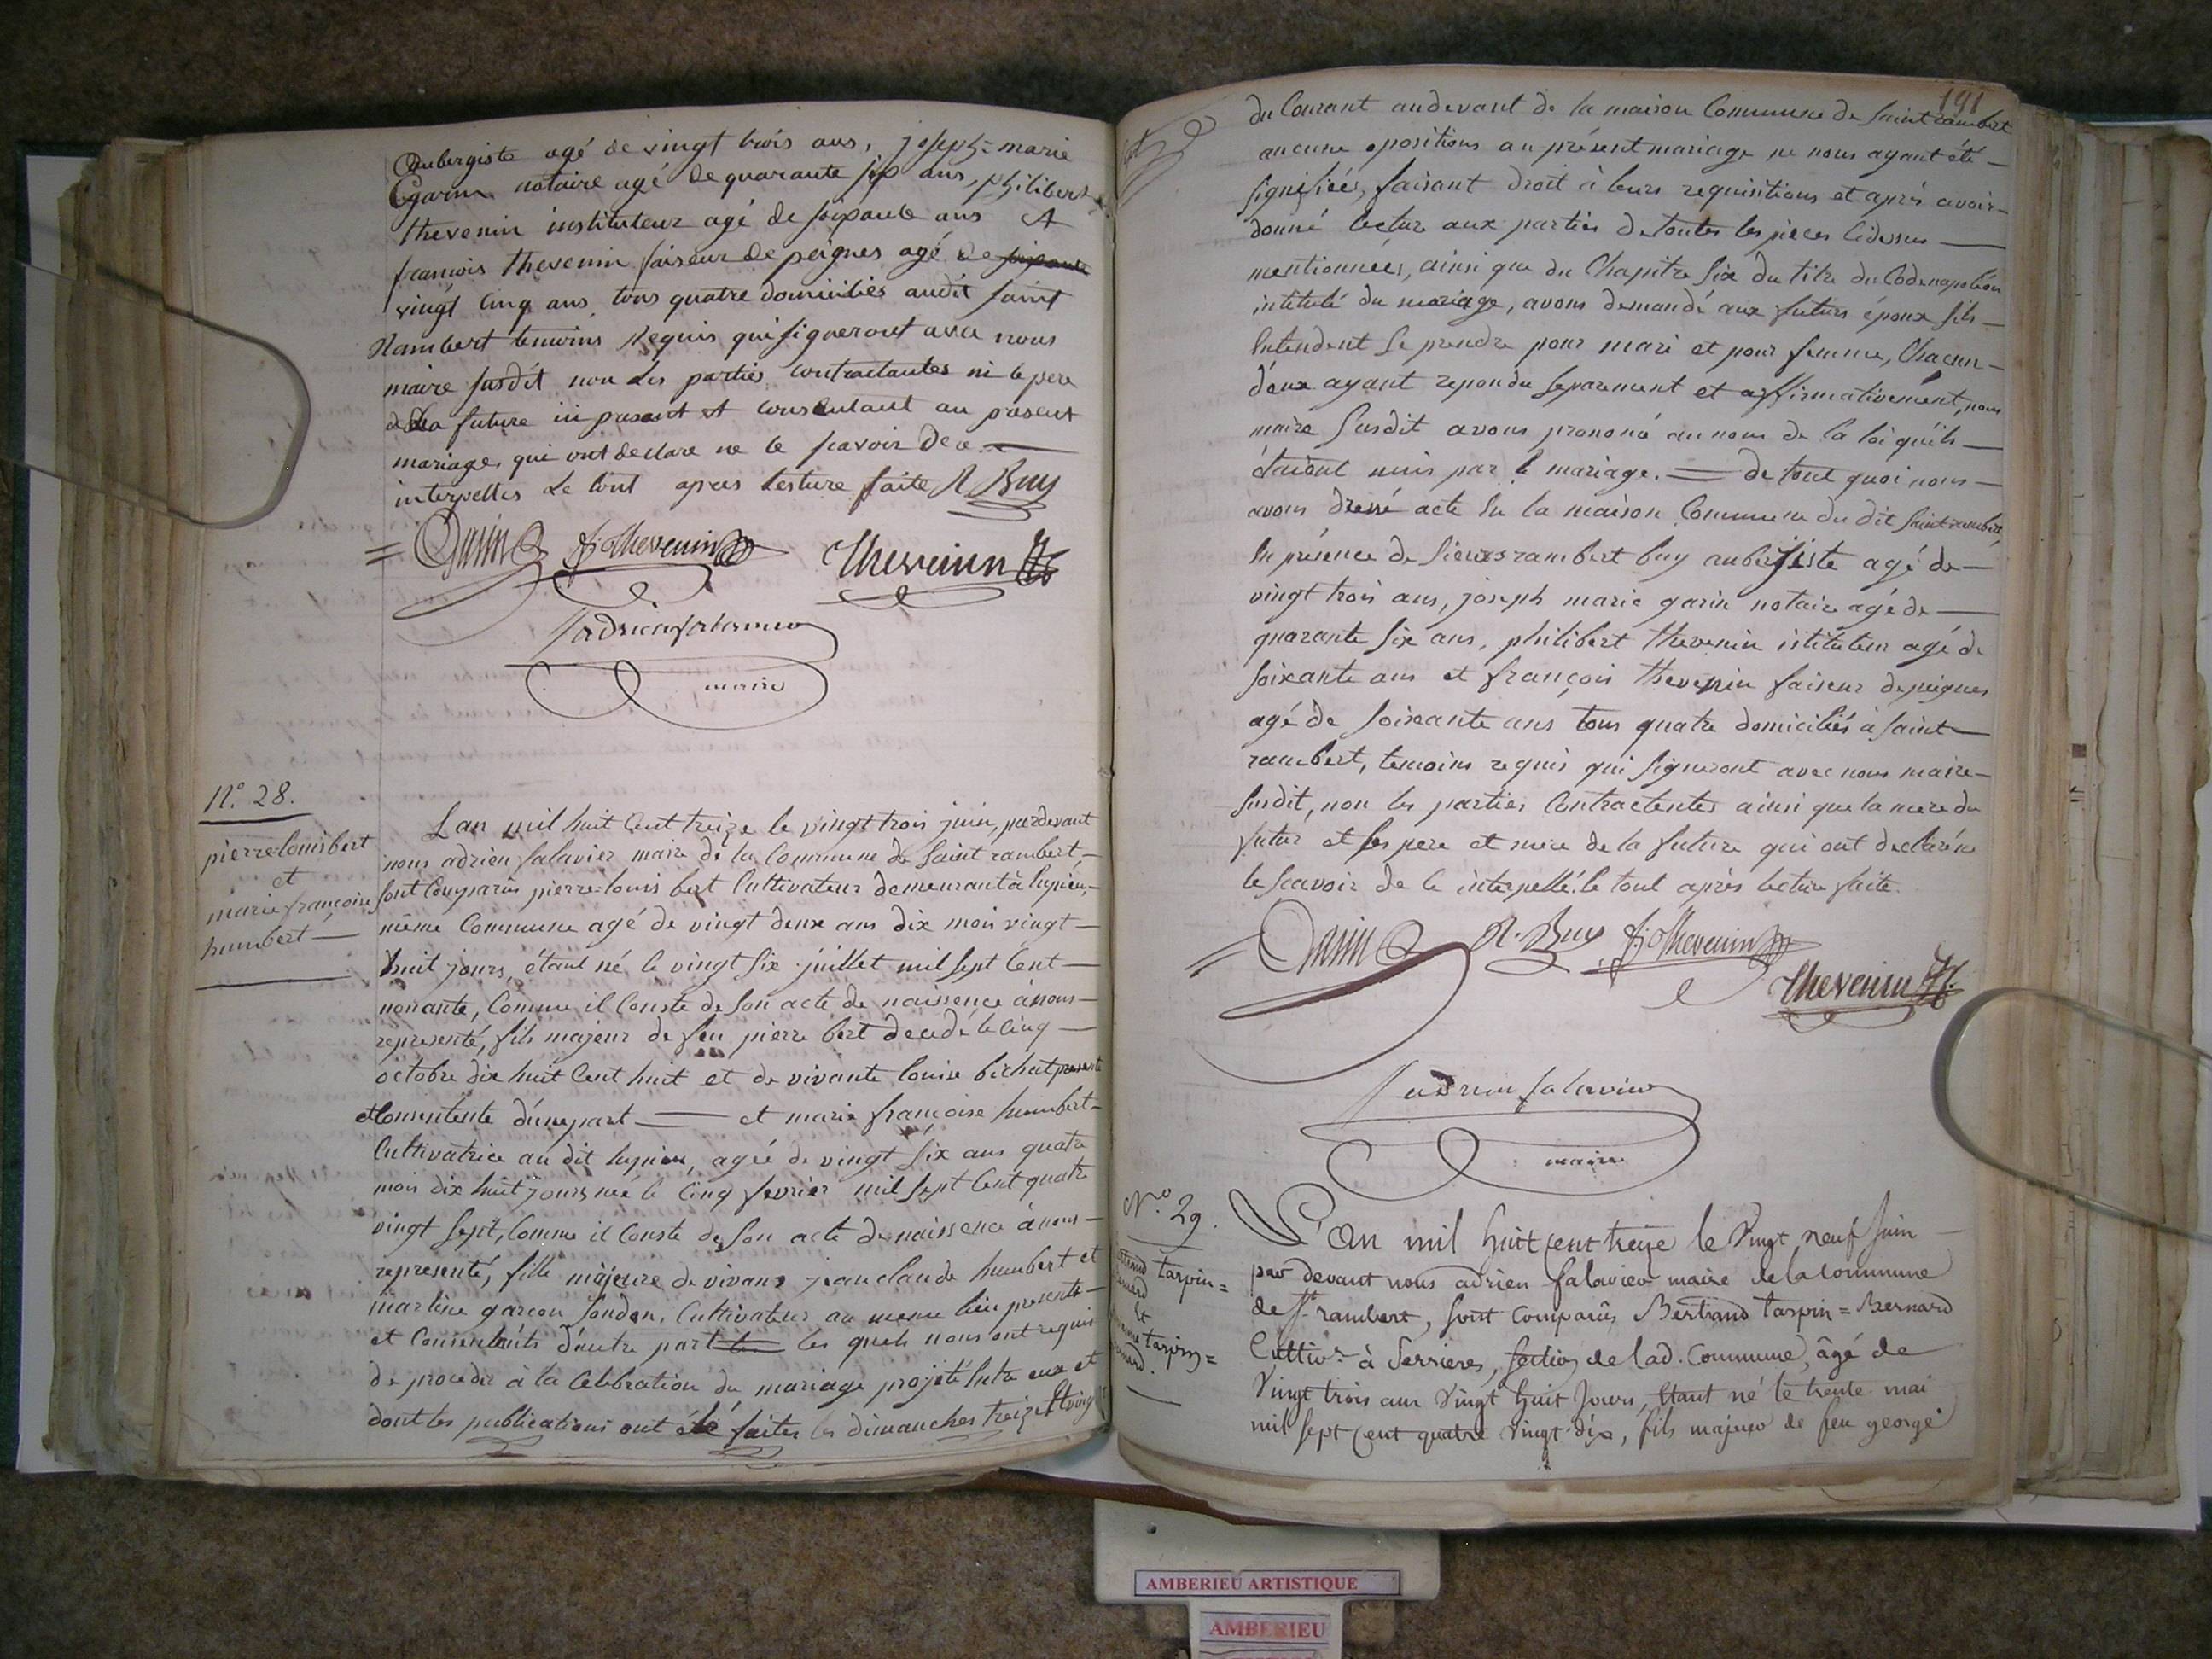 aubergiste agé de vingt trois ans, joseph=marie
garin notaire agé de quarante six ans, philibert
thevenin instituteur agé de soixante ans et
françois thevenin faiseur de peignes agé de soixante
vingt cinq ans, tous quatre domiciliés audit saint
Rambert temoins Requis qui signeront avec nous
maire susdit non les parties contractantes ni le pere
de la future ici present et consentant au present
mariage, qui ont declare ne le scavoir de ce
interpellés Le tout apres lesture faite R Buy
= Garin f: Thevenin Thevenin
adrien salavier
maire
N.° 28.
pierre=louis bert
et
marie françoise
humbert —
Lan mil huit Cent treize le vingt trois juin, pardevant
nous adrien salavier maire de la Commune de Saint rambert —
sont Comparus pierre=louis bert Cultivateur demeurant à lupieu, —
même Commune agé de vingt deux ans dix mois vingt —
huit jours, étant né le vingt six juillet mil sept Cent —
nonante, Comme il Conste de Son acte de naissence à nous —
representé, fils majeur de feu pierre bert decedé le Cinq —
octobre dix huit Cent huit et de vivante louise bichat presente
et Consentente d'une part — et marie françoise humbert —
Cultivatrice au dit lupieu, agée de vingt six ans quatre
mois dix huit jours née le Cinq fevrier mil Sept Cent quatre
vingt Sept, Comme il Conste de Son acte de naissence à nous —
representé, fille majeure de vivans jean claude humbert et
martine garçon Cultivateurs au meme lieu presents —
et Consentents d'autre part les quels nous ont requis
de proceder à la Celebration du mariage projeté Entre eux et
dont les publications ont été faites les dimanches treize et vingt
191
du Courant audevant de la maison Commune de Saint rambert
aucune opositions au présent mariage ne nous ayant été —
Signifiées, faisant droit à leurs requisitions et après avoir —
donné lectur aux parties de toutes les pièces Cidessus —
mentionnées, ainsi que du Chapitre Six du titre du Code napoléon
intitulé du mariage, avons demandé aux futurs époux s'ils —
Entendent Se prendre pour mari et pour femme, Chacun —
d'eux ayant repondu Separement et affirmativement, nous
maire Susdit avons prononcé au nom de la loi qu'ils —
étaient unis par le mariage. — de tout quoi nous —
avons dressé acte En la maison Commune du dit Saint rambert
En présence de Sieurs rambert buy aubergiste agé de —
vingt trois ans, joseph marie garin notaire agé de —
quarante Six ans, philibert thevenin istituteur agé de
Soixante ans et françois thevenin faiseur de peignes
agé de Soixante ans tous quatre domiciliés à Saint —
rambert, temoins requis qui Signeront avec nous maire —
Susdit, non les parties Contractentes ainsi que la mere du
futur et les pere et mere de la future qui ont declaré ne
le Scavoir de Ce interpellé. le tout après lecture faite.
= Garin R. Buy f: Thevenin
Thevenin
adrien salavier
maire
N.° 29.
tarpin=
et
tarpin=
L'An mil huit cent treize le Vingt neuf Juin —
par devant nous adrien salavier maire de la commune
de St. rambert, sont comparûs Bertrand tarpin=Bernard
Cultivr. à Serrieres, section de lad. Commune, âgé de
Vingt trois ans Vingt huit Jours, Etant né le trente mai
mil sept cent quatre vingt dix, fils majeur de feu george
AMBERIEU ARTISTIQUE
AMBERIEU